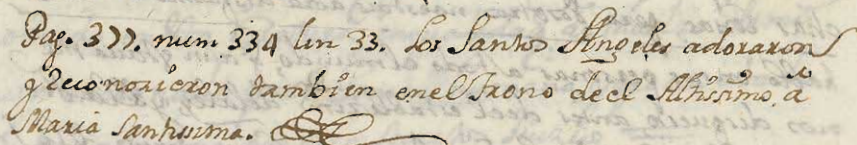 Pag. 377. num 334 lin 33. Los Santos Angeles adoraron
y Reconozieron tambien en el Trono de el Altissimo, â
Maria Santissima.